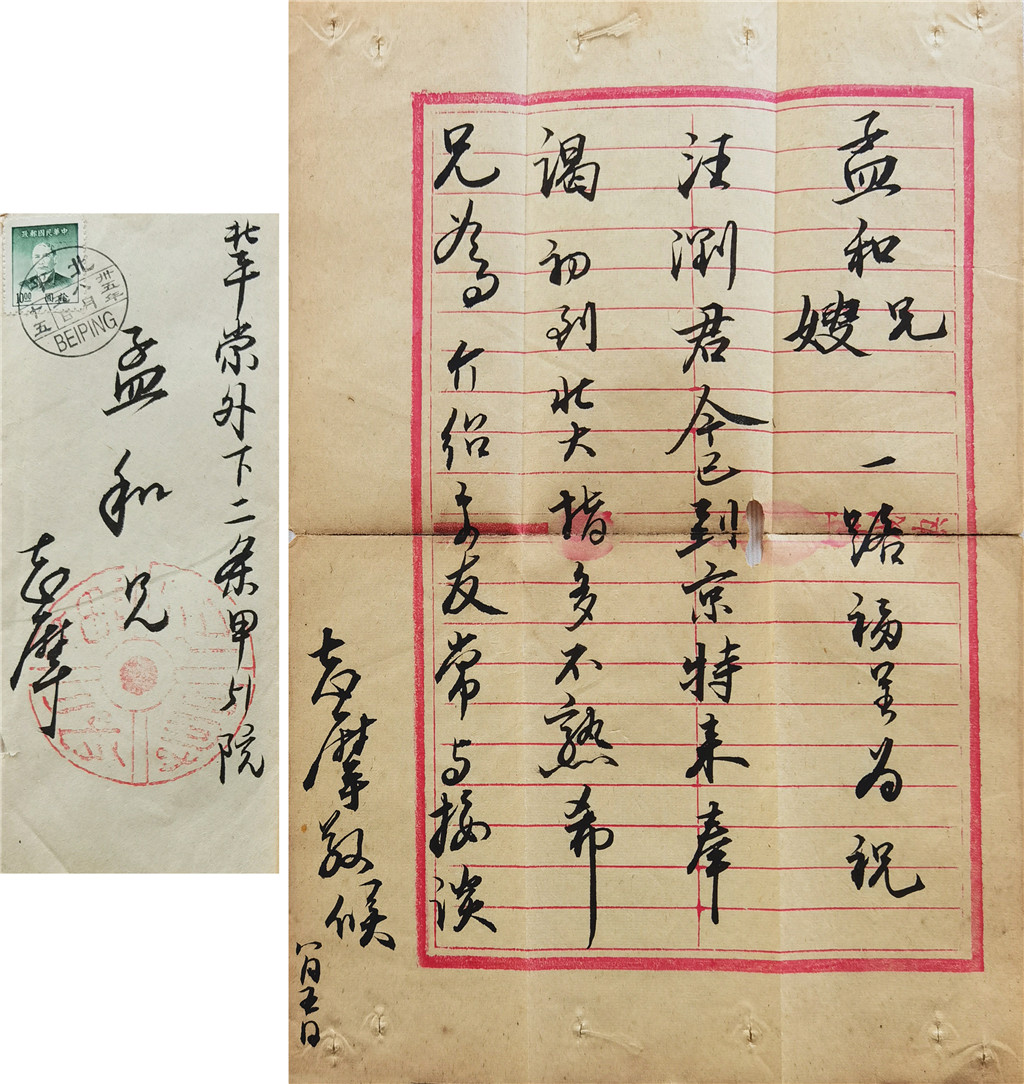 孟和兄嫂一路福星为祝
汪浏君今已到京特来奉
谒初到北大指多不熟希
兄为介绍等友常与接谈
志摩敬候
八月五日
北平崇外下二条甲51院
孟和兄
志摩
中華民国郵政
10.00
北平
卅五年
八月
BEIPING